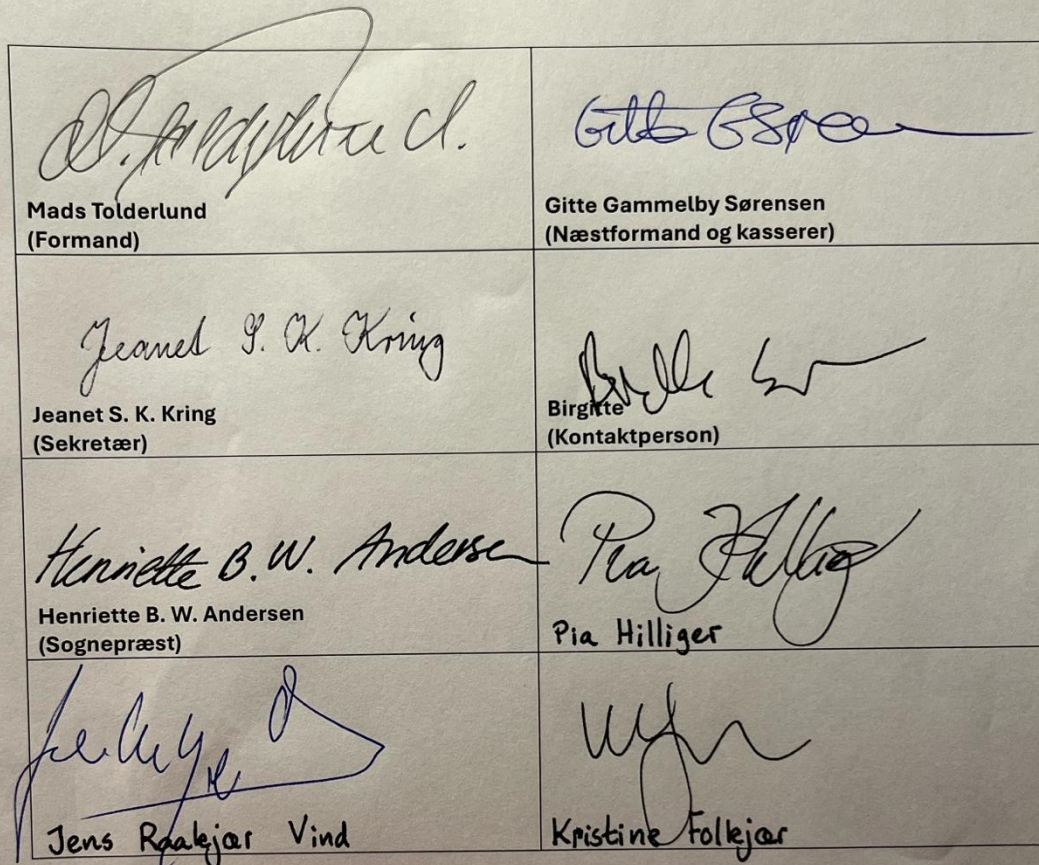 Mads Tolderlund
(Formand)
Gitte G Søren
Gitte Gammelby Sørensen
(Næstformand og kasserer)
Jeanet S. K. Kring
Jeanet S. K. Kring
(Sekretær)
Birgitte
(Kontaktperson)
Henriette B. W. Andersen
Henriette B. W. Andersen
(Sognepræst)
Pia Hilliger
Pia Hilliger
Jens Raakjær Vind
Kristine Folkjær